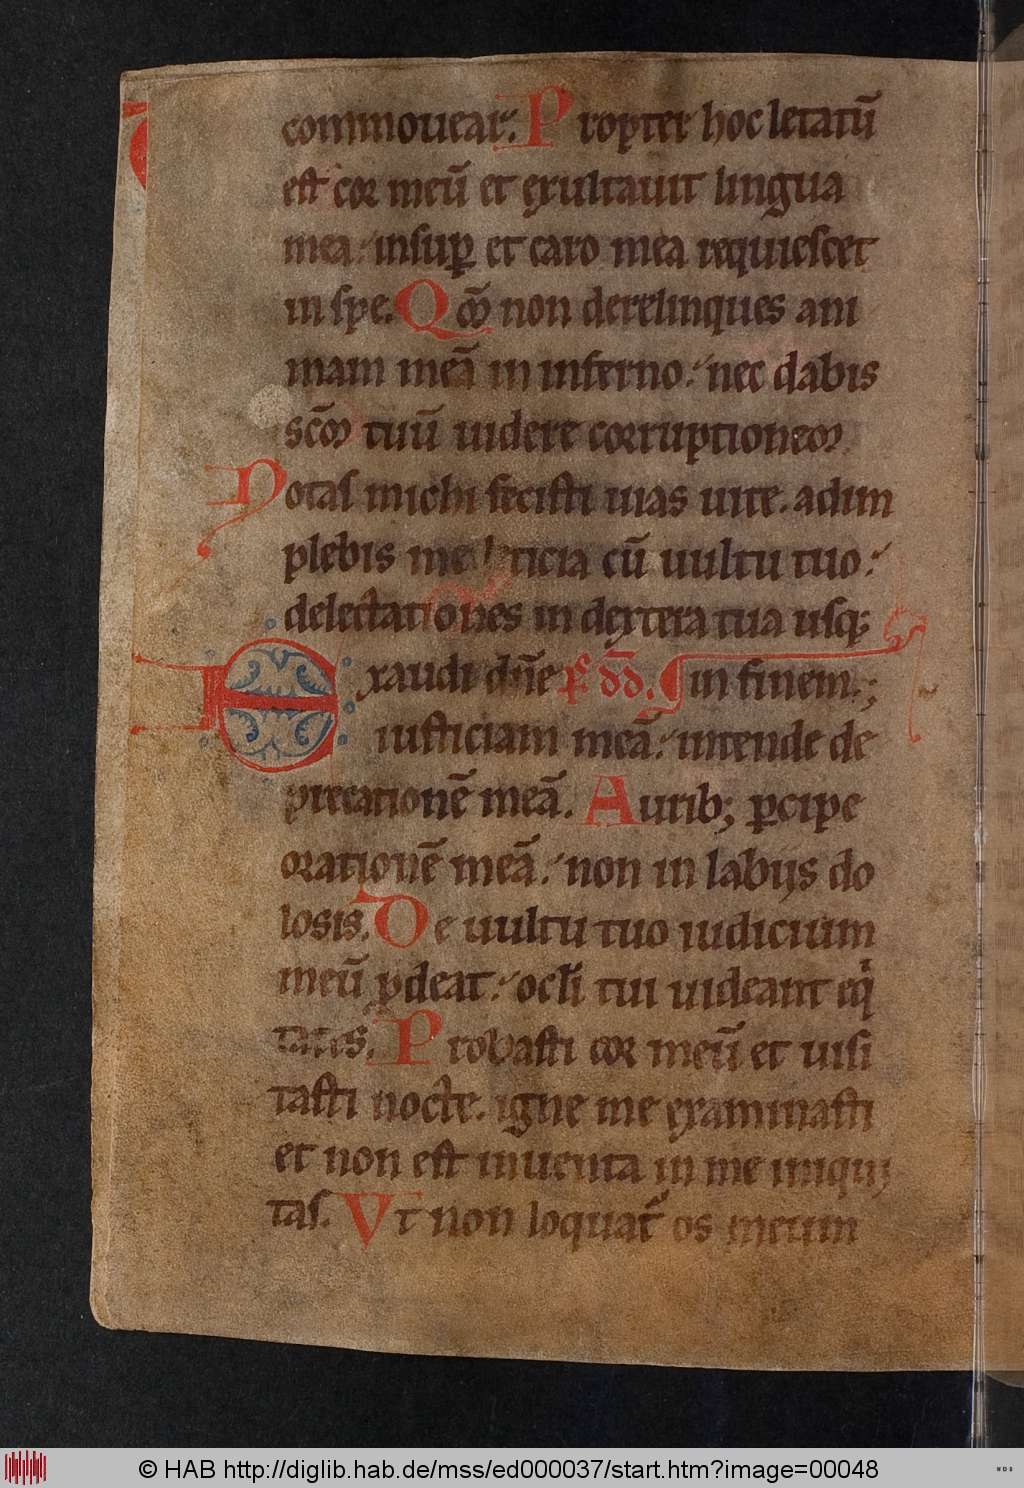 commouear. Propter hoc letatū
est cor meū et exultauit lingua
mea. insup et caro mea requiescet
in spe. Qm̄ non derelinques ani
mam meā in inferno. nec dabis
scm̄ tuū uidere corruptionem
Notas michi fecisti uias uite. adim
plebis me leticia cū uultu tuo.
delectationes in dextera tua usq;
Exaudi dn̄e in finem;
iusticiam meā. intende de
precationē meā. Aurib; pcipe
orationē meā. non in labijs do
losis. De uultu tuo iudicium
meū pdeat. ocl̄i tui uideant eq
tates. Probasti cor meū et uisi
tasti nocte. igne me examinasti
et non est inuenta in me iniqui
tas. Vt non loquat os meum
© HAB http://diglib.hab.de/mss/ed000037/start.htm?image=00048